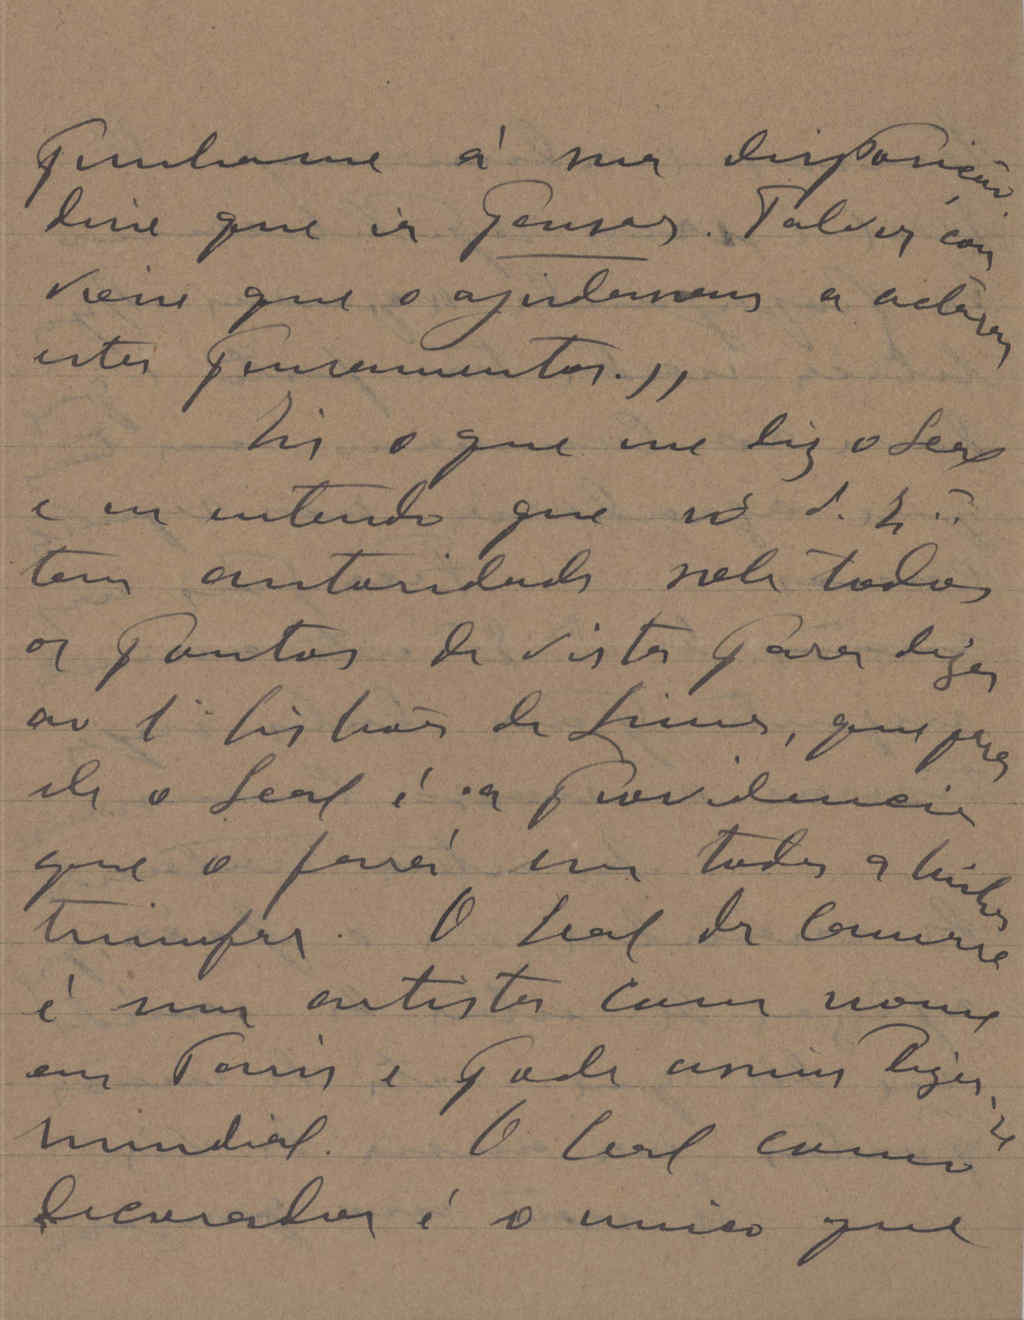 punhame á sua disposição
disse que ia pensar. Talvez con
viesse que o ajudassem a aclarar
estes pensamentos.,,
Eis o que me diz o Leal
e eu entendo que só V. Ex.ª
tem autoridade sob todos
os pontos de vista para dizer
ao de Lima, que para
ele o Leal é a providencia
que o fará em toda a linha
triumfar. O Leal da Camara
é um artista com nome
em Paris e pode assim dizer-se
mundial. O Leal como
decorador é o unico que